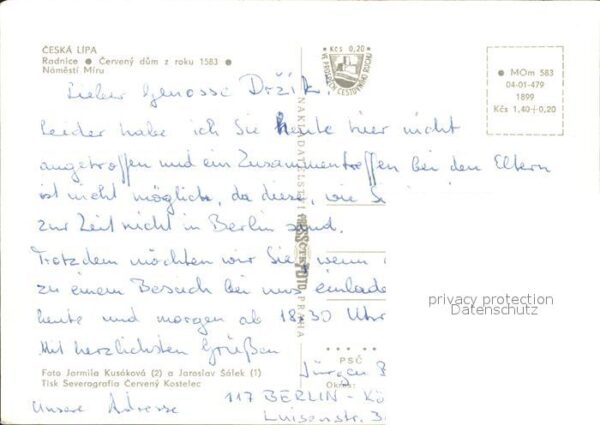 ČESKÁ LÍPA
Radnice ● Červený dům z roku 1583 ●
Náměstí Míru
Kčs 0,20
VE PROSPĚCH CESTOVNÍHO RUCHU
● MOm 583
04-01-479
1899
Kčs 1,40+0,20
Lieber Genosse Držík,
Leider habe ich Sie heute hier nicht
angetroffen und ein Zusammentreffen bei den Eltern
ist nicht möglich, da diese, wie
zur Zeit nicht in Berlin sind.
Trotzdem möchten wir Sie, wenn
zu einem Besuch bei uns einlade
heute und morgen ab 18.30 Uhr
Mit herzlichsten Grüßen
Jürgen
NAKLADATELSTVÍ
PRAHA
privacy protection
Datenschutz
PSČ
Okres:
Foto Jarmila Kusáková (2) a Jaroslav Šálek (1)
Tisk Severografia Červený Kostelec
Unsere Adresse
117 BERLIN - Kö
Luisenstr. 3